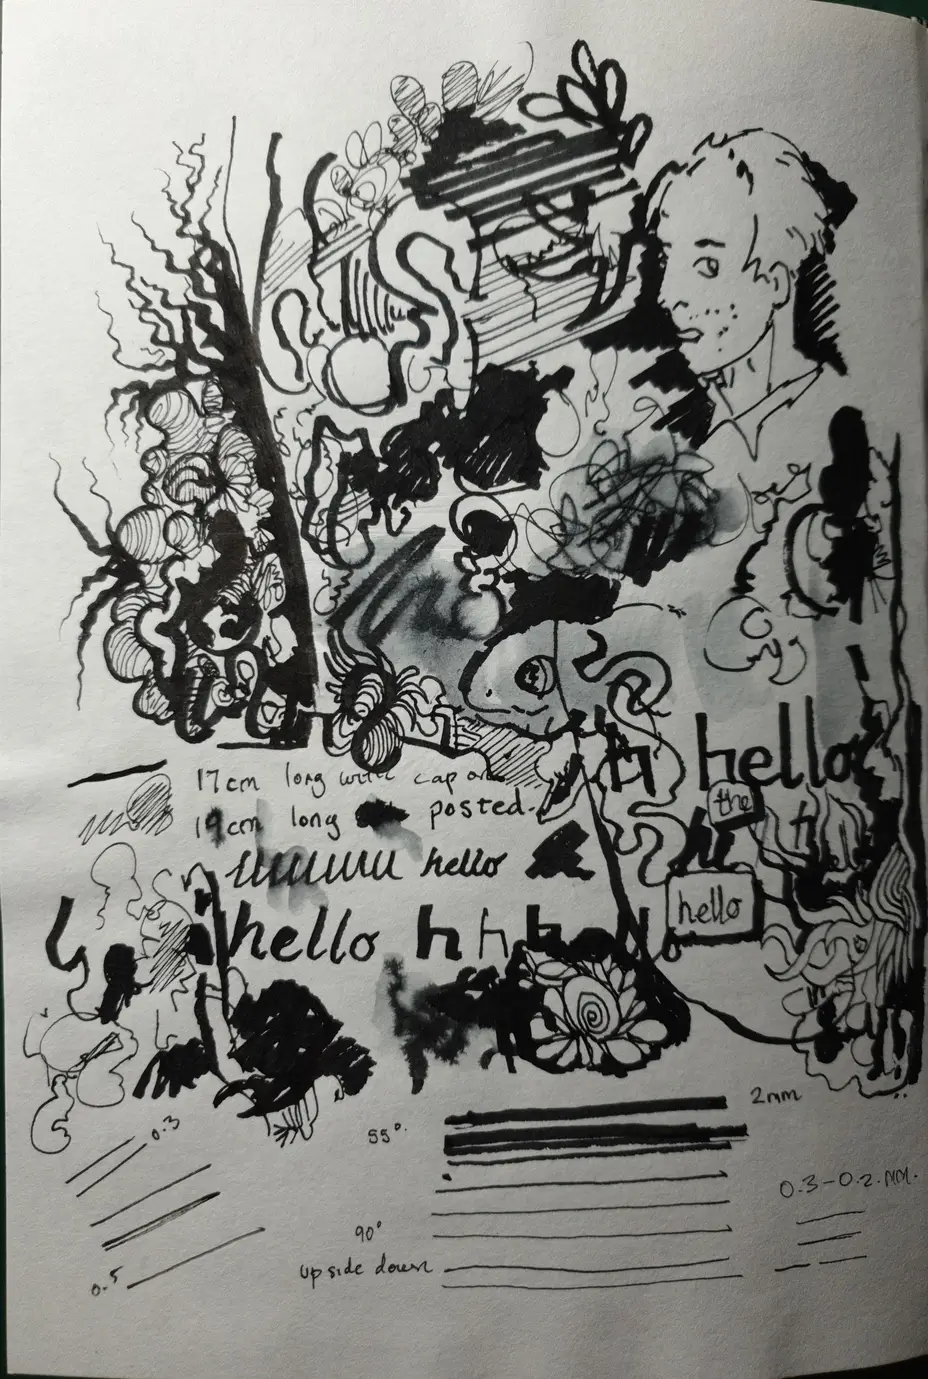 17cm long with cap on
19cm long posted.
hello
h hello
the
h
hello
hello h h h
0.3
55°.
2mm
0.3-0.2.mm.
90°
upside down
0.5